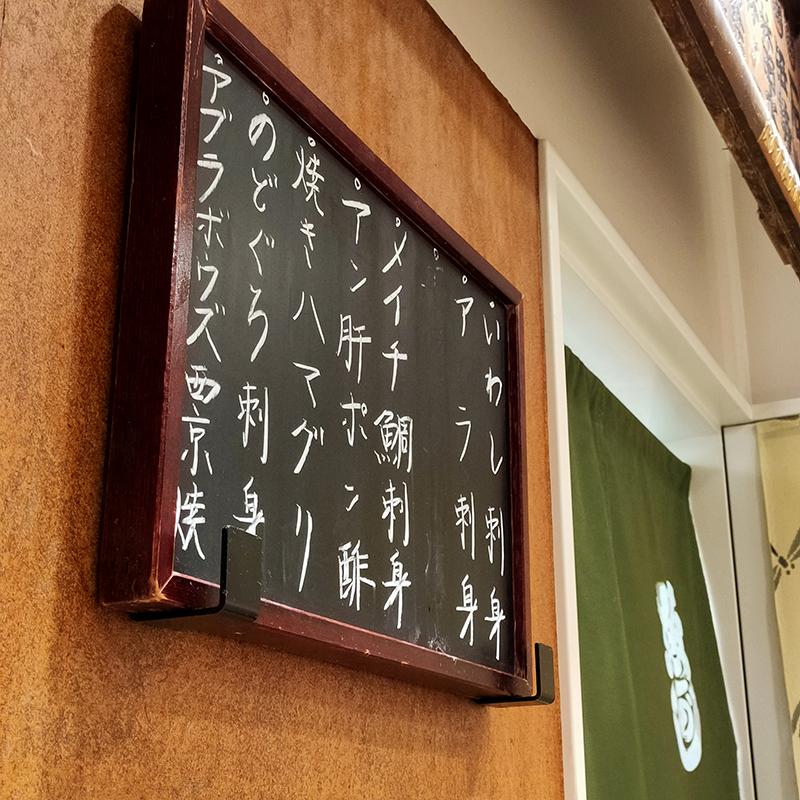 。いわし刺身
。アラ刺身
。
。メイチ鯛刺身
。アン肝ポン酢
。焼きハマグリ
。のどぐろ刺身
。アブラボウズ西京焼